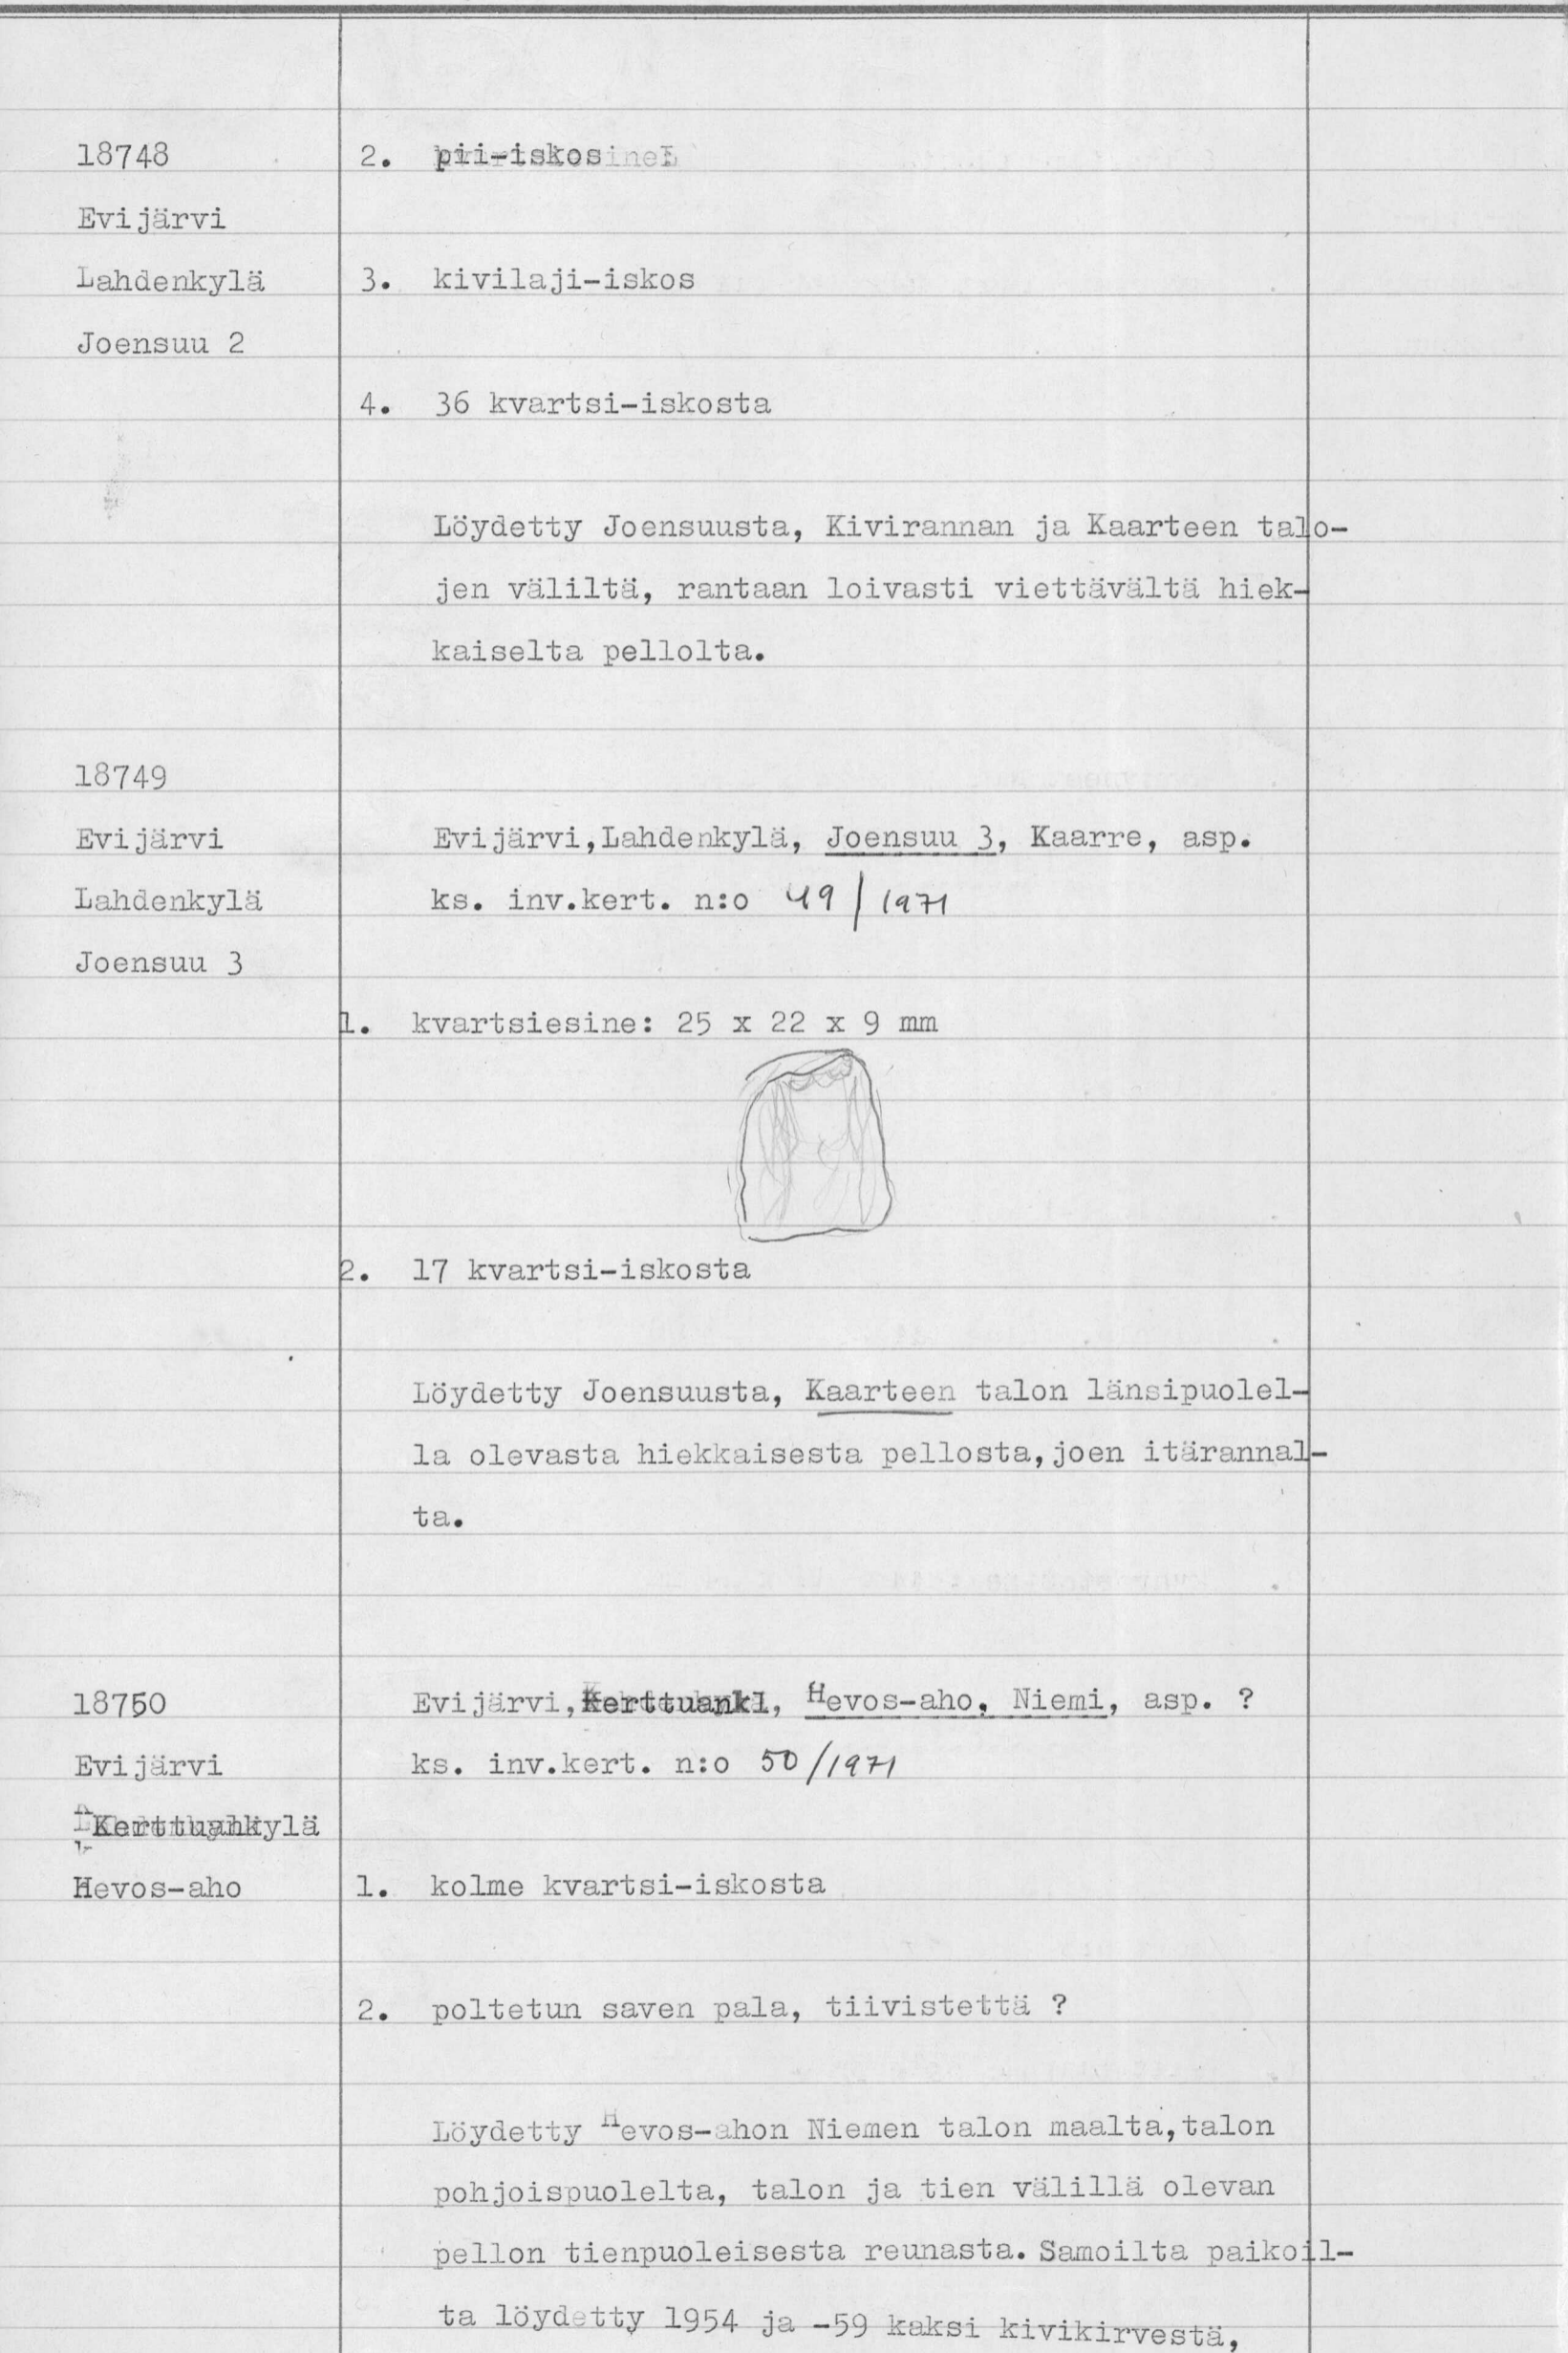 18748
2. pii-iskos
Evijärvi
Lahdenkylä
3. kivilaji-iskos
Joensuu 2
4. 36 kvartsi-iskosta
Löydetty Joensuusta, Kivirannan ja Kaarteen talo-
jen väliltä, rantaan loivasti viettävältä hiek-
kaiselta pellolta.
18749
Evijärvi
Lahdenkylä
Joensuu 3
Evijärvi,Lahdenkylä, Joensuu 3, Kaarre, asp.
ks. inv.kert. n:o 49/1971
1. kvartsiesine: 25 x 22 x 9 mm
2. 17 kvartsi-iskosta
Löydetty Joensuusta, Kaarteen talon länsipuolel-
la olevasta hiekkaisesta pellosta,joen itärannal-
ta.
18750
Evijärvi
Kerttuankylä
Hevos-aho
Evijärvi,Kerttuankl, Hevos-aho, Niemi, asp. ?
ks. inv.kert. n:o 50/1971
1. kolme kvartsi-iskosta
2. poltetun saven pala, tiivistettä ?
Löydetty Hevos-ahon Niemen talon maalta,talon
pohjoispuolelta, talon ja tien välillä olevan
pellon tienpuoleisesta reunasta. Samoilta paikoil-
ta löydetty 1954 ja -59 kaksi kivikirvestä,